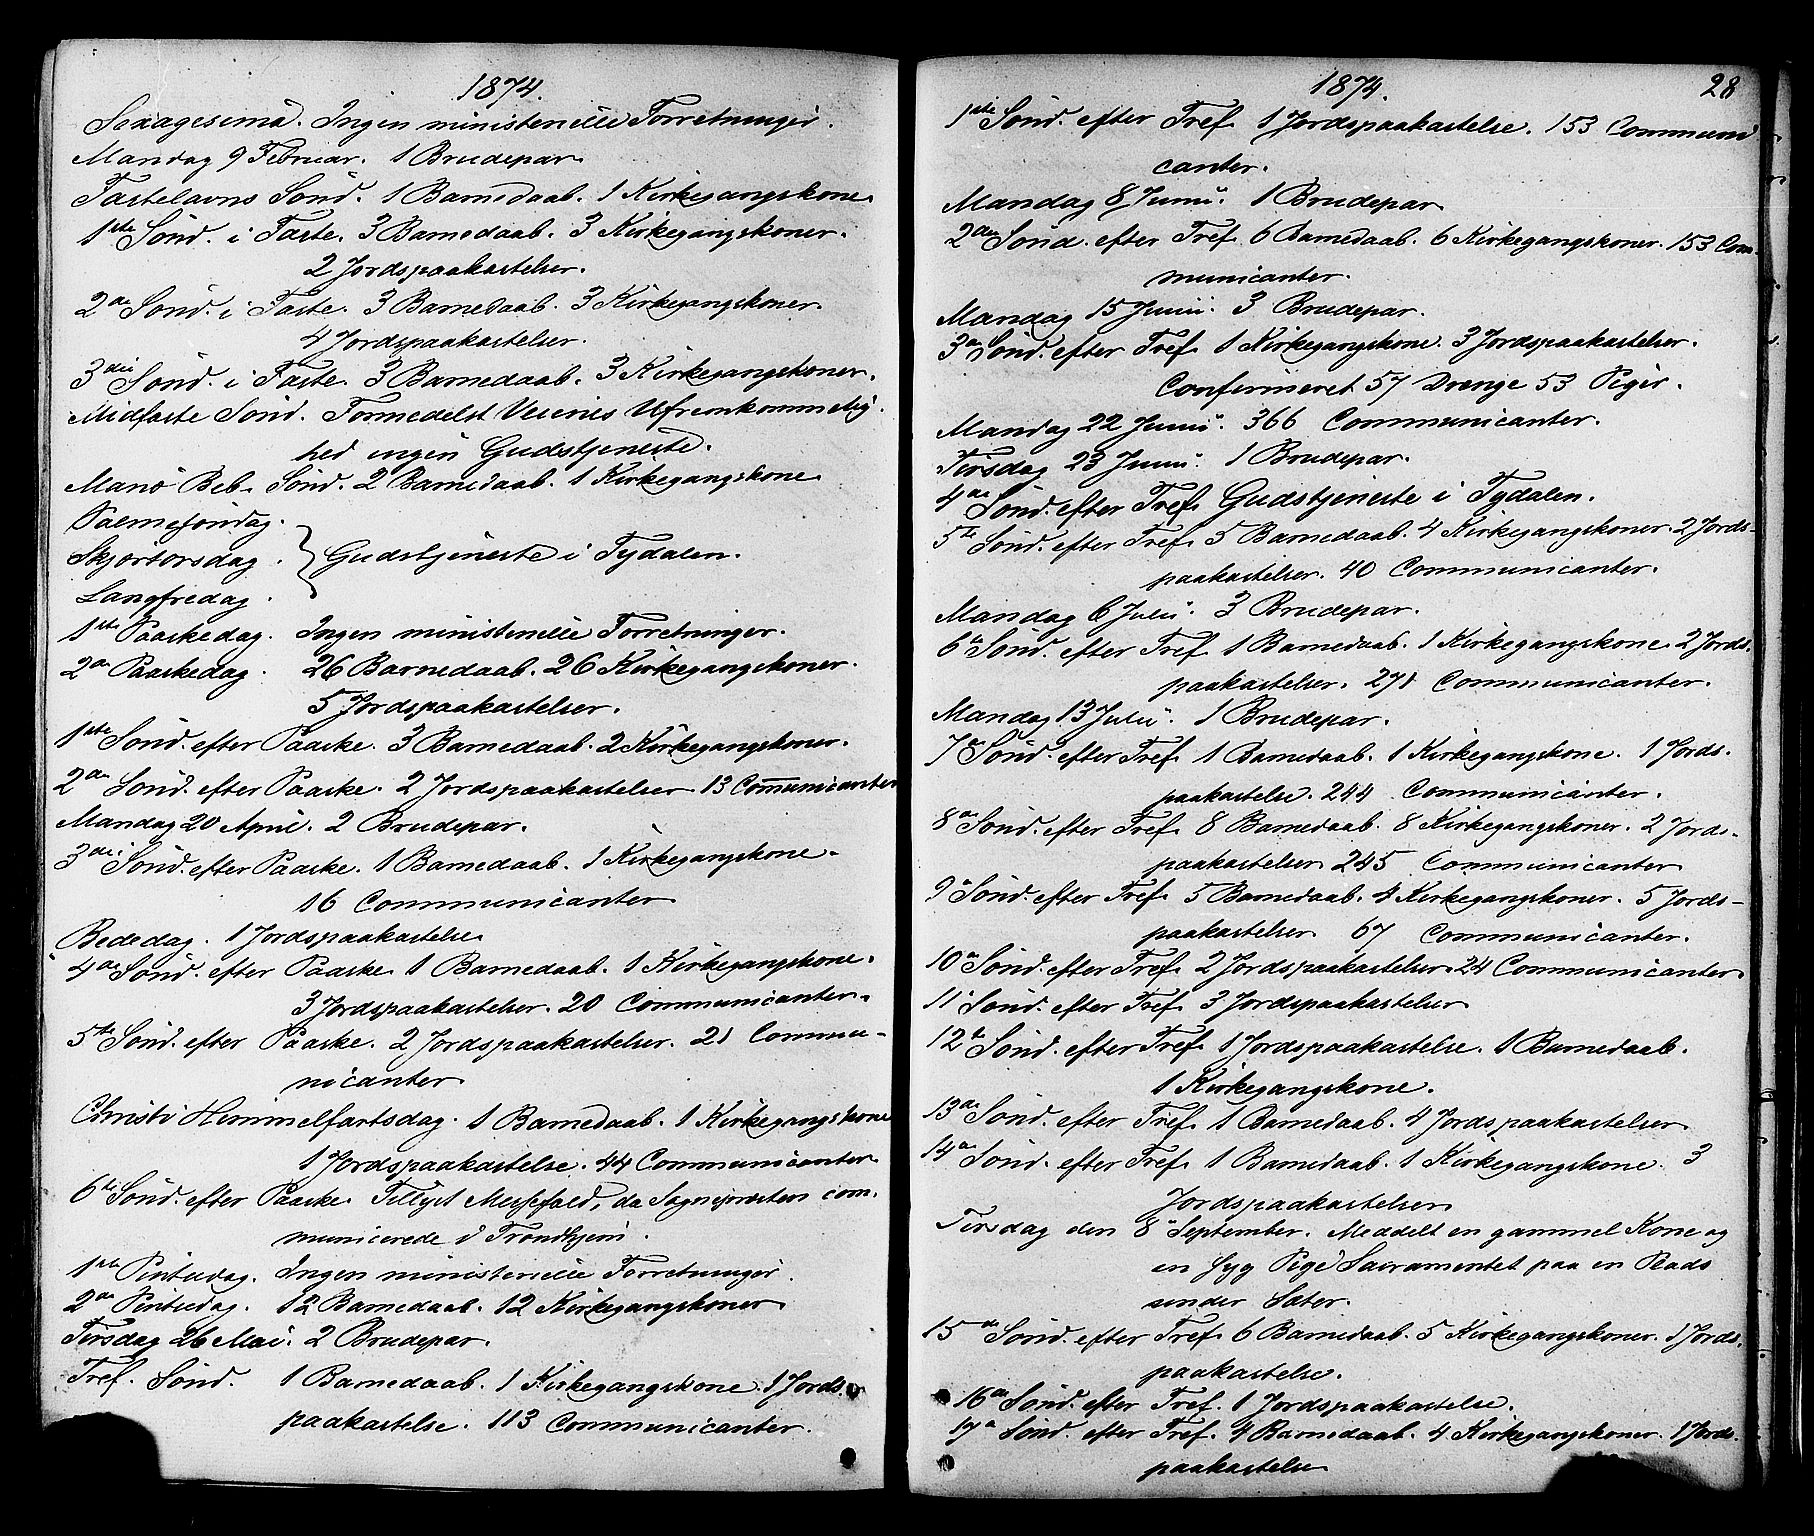 1874.
Sexagesima. Ingen ministerielle Forretninger.
Mandag 9 Februar. 1 Brudepar.
Fastelavns Sönd. 1 Barnedaab. 1 Kirkegangskone.
1ste Sönd. i Faste. 3 Barnedaab. 3 Kirkegangskoner.
2 Jordspaakastelser.
2den Sönd. i Faste. 3 Barnedaab. 3 Kirkegangskoner.
4 Jordspaakastelser.
3die Sönd. i Faste. 3 Barnedaab. 3 Kirkegangskoner.
Midfaste Sönd. Formedelst Veienes Ufremkommelig
hed ingen Gudstjeneste.
Mariö Beb. Sönd. 2 Barnedaab. 1 Kirkegangskone
Palmesöndag.
Skjærtorsdag. Gudstjeneste i Tydalen.
Langfredag.
1ste Paaskedag. Ingen ministerielle Forretninger.
2den Paaskedag. 26 Barnedaab. 26 Kirkegangskoner.
5 Jordspaakastelser.
1ste Sönd. efter Paaske. 3 Barnedaab. 2 Kirkegangskoner.
2den Sönd. efter Paaske. 2 Jordspaakastelser. 13 Communicanter
Mandag 20 April. 2 Brudepar.
3die Sönd. efter Paaske. 1 Barnedaab. 1 Kirkegangskone.
16 Communicanter
Bededag. 1 Jordspaakastelse
4de Sönd. efter Paaske. 1 Barnedaab. 1 Kirkegangskone.
3 Jordspaakastelser. 20 Communicanter.
5te Sönd. efter Paaske. 2 Jordspaakastelser. 21 Commu-
nicanter
Christi Himmelfartsdag. 1 Barnedaab. 1 Kirkegangskone
1 Jordspaakastelse. 44 Communicanter.
6te Sönd. efter Paaske. Tillyst Messefald, da Sognepræsten com.
municerede i Trondhjem.
1ste Pintsedag. Ingen ministerielle Forretninger.
2den Pintsedag. 12 Barnedaab. 12 Kirkegangskoner
Tirsdag 26 Mai. 2 Brudepar.
Tref. Sönd. 1 Barnedaab. 1 Kirkegangskone. 1 Jords.
paakastelse. 113 Communicanter.
1874.
28
1ste Sönd. efter Tref. 1 Jordspaakastelse. 153 Communi
canter.
Mandag 8 Junii. 1 Brudepar.
2den Sönd. efter Tref. 6 Barnedaab. 6 Kirkegangskoner. 153 Com-
municanter.
Mandag 15 Junii. 3 Brudepar.
3die Sönd. efter Tref. 1 Kirkegangskone. 3 Jordspaakastelser.
Confirmeret 57 Drenge 53 Piger.
Mandag 22 Junii. 366 Communicanter.
Tirsdag 23 Junii. 1 Brudepar.
4de Sönd. efter Tref. Gudstjeneste i Tydalen.
5te Sönd. efter Tref. 5 Barnedaab. 4 Kirkegangskoner. 2 Jords-
paakastelser. 40 Communicanter.
Mandag 6 Julii. 3 Brudepar.
6te Sönd. efter Tref. 1 Barnedaab. 1 Kirkegangskone. 2 Jords.
paakastelser. 271 Communicanter.
Mandag 13 Julii. 1 Brudepar.
7de Sönd. efter Tref. 1 Barnedaab. 1 Kirkegangskone. 1 Jords.
paakastelse. 244 Communicanter.
8de Sönd. efter Tref. 8 Barnedaab. 8 Kirkegangskoner. 2 Jords-
paakastelser 245 Communicanter
9de Sönd. efter Tref. 5 Barnedaab. 4 Kirkegangskoner. 5 Jords-
paakastelser. 67 Communicanter.
10de Sönd. efter Tref. 2 Jordspaakastelser. 24 Communicanter.
11 Sönd. efter Tref. 3 Jordspaakastelser
12te Sönd. efter Tref. 1 Jordspaakastelse. 1 Barnedaab.
1 Kirkegangskone.
13de Sönd. efter Tref. 1 Barnedaab. 4 Jordspaakastelser.
14de Sönd. efter Tref. 1 Barnedaab. 1 Kirkegangskone. 3
Jordspaakastelser
Tirsdag den 8 September. Meddelt en gammel Kone og
en syg Pige Sacramentet paa en Plads
under Sæter.
15de Sönd. efter Tref. 6 Barnedaab. 5 Kirkegangskoner. 1 Jords.
paakastelse.
16de Sönd. efter Tref. 1 Jordspaakastelse.
17de Sönd. efter Tref. 4 Barnedaab. 4 Kirkegangskoner. 1 Jords-
paakastelse